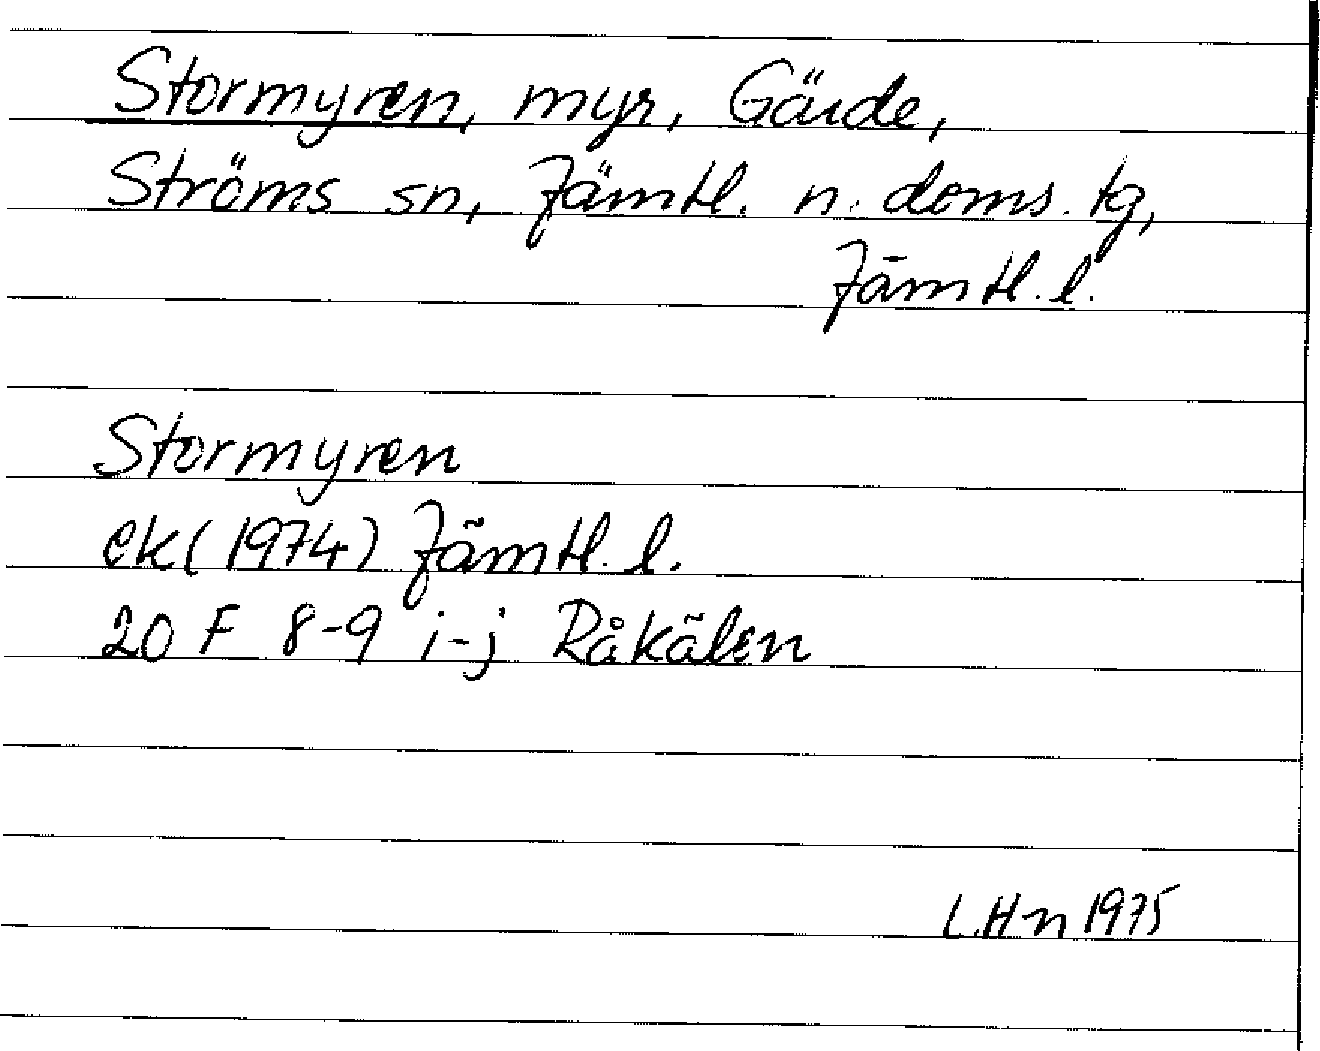 Stormyren, myr, Gärde,
Ströms sn, Jämtl. n. doms. tg,
Jämtl. l.
Stormyren
ek (1974) Jämtl. l.
20 F 8-9 i-j Råkälen
L.Hn 1975